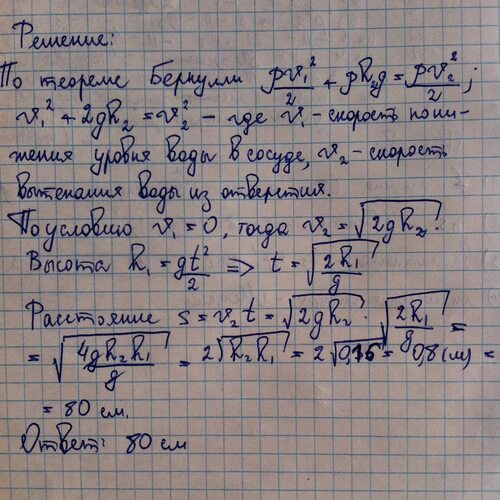 Решение:
По теореме Бернулли ρv₁²/2 + ρh₂g = ρv₂²/2;
v₁² + 2gh₂ = v₂² – где v₁ – скорость пони-
жения уровня воды в сосуде, v₂ – скорость
вытекания воды из отверстия.
По условию v₁ = 0, тогда v₂ = √2gh₂.
Высота h₁ = gt²/2 => t = √2h₁/g
Расстояние s = v₂t = √2gh₂ · √2h₁/g =
= √4gh₂h₁/g = 2√h₂h₁ = 2√0,16 = 0,8 (м) =
= 80 см.
Ответ: 80 см